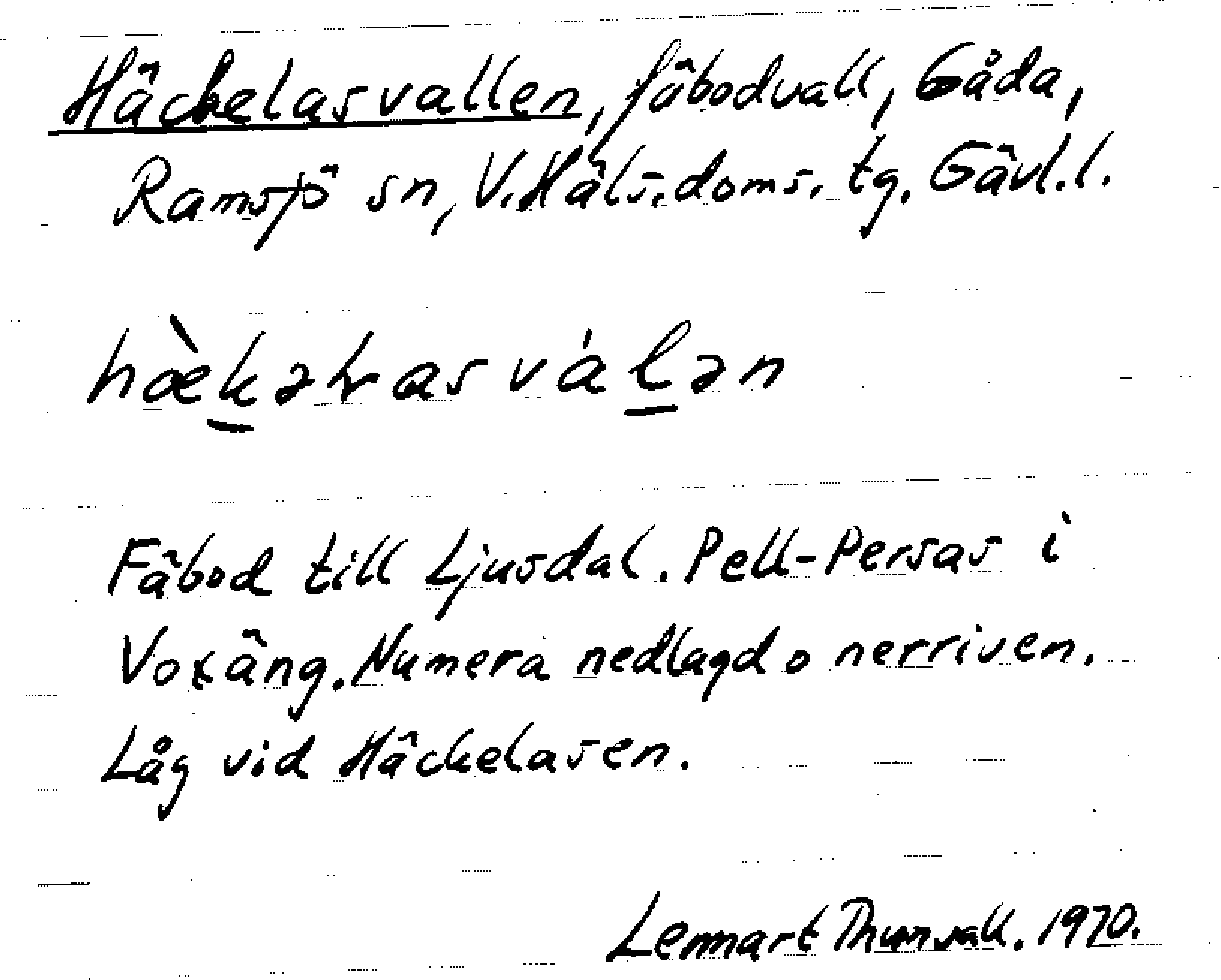 Häckelasvallen, fäbodvall, Gåda,
Ramsjö sn, V. Häls. doms. tg. Gävl. l.
hæ̀kəɬrasválən
Fäbod till Ljusdal. Pell-Persas i
Voxäng. Numera nedlagd o nerriven.
Låg vid Häckelasen.
Lennart Thunvall. 1970.